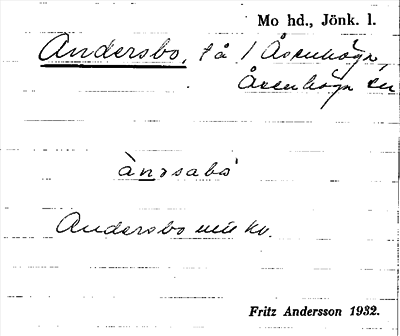 Mo hd., Jönk. l.
Andersbo, på 1 Åsenhöga,
Åsenhöga sn
ànrsabo
Andersbo
Fritz Andersson 1932.